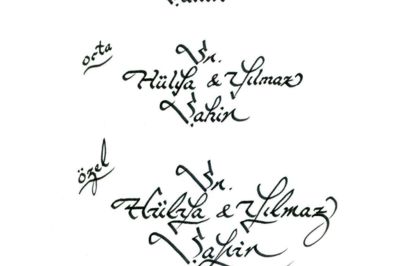 orta
Sn.
Hülya & Yılmaz
Şahin
özel
Sn.
Hülya & Yılmaz
Şahin